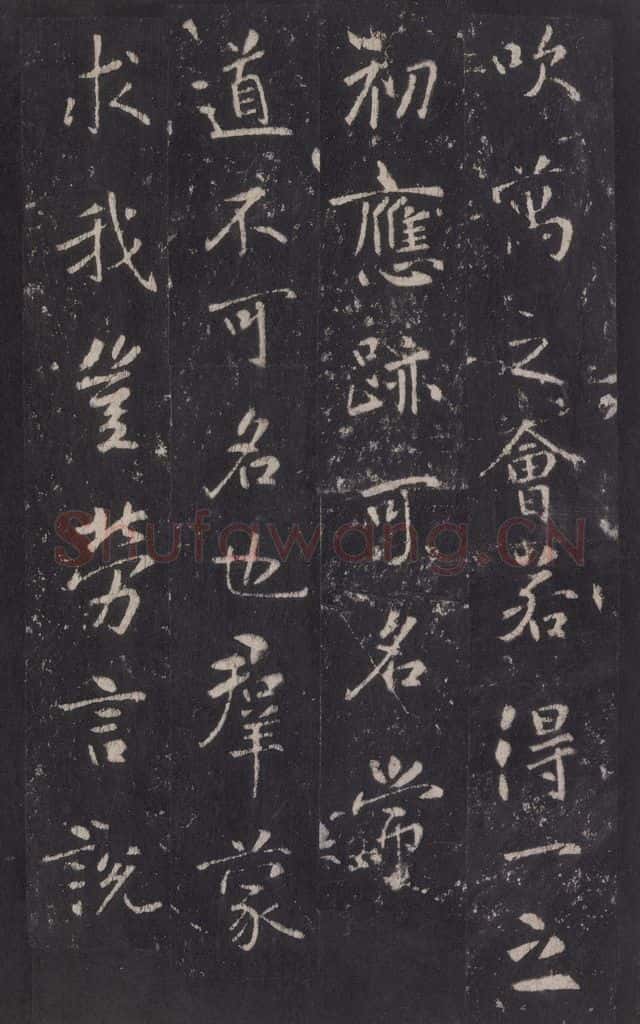 吹萬之會若得一之
初應跡可名常
道不可名也羣蒙
求我豈勞言説
Shufawang.CN